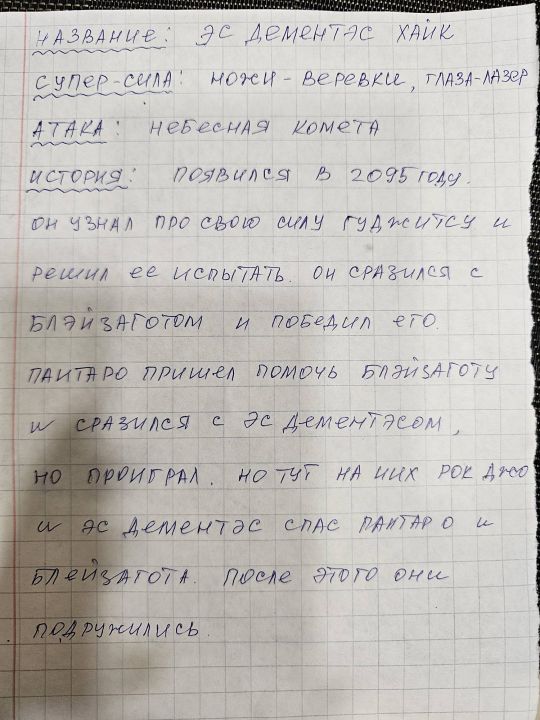 НАЗВАНИЕ: ЭС ДЕМЕНТЭС ХАЙК
СУПЕР-СИЛА: НОЖИ-ВЕРЕВКИ, ГЛАЗА-ЛАЗЕР
АТАКА: НЕБЕСНАЯ КОМЕТА
ИСТОРИЯ: ПОЯВИЛСЯ В 2095 ГОДУ.
ОН УЗНАЛ ПРО СВОЮ СИЛУ ГУДЖИТСУ И
РЕШИЛ ЕЕ ИСПЫТАТЬ. ОН СРАЗИЛСЯ С
БЛЭЙЗАГОТОМ И ПОБЕДИЛ ЕГО.
ПАНТАРО ПРИШЕЛ ПОМОЧЬ БЛЭЙЗАГОТУ
И СРАЗИЛСЯ С ЭС ДЕМЕНТЭСОМ,
НО ПРОИГРАЛ. НО ТУТ НА НИХ РОК ДЖО
И ЭС ДЕМЕНТЭС СПАС ПАНТАРО И
БЛЕЙЗАГОТА. ПОСЛЕ ЭТОГО ОНИ
ПОДРУЖИЛИСЬ.